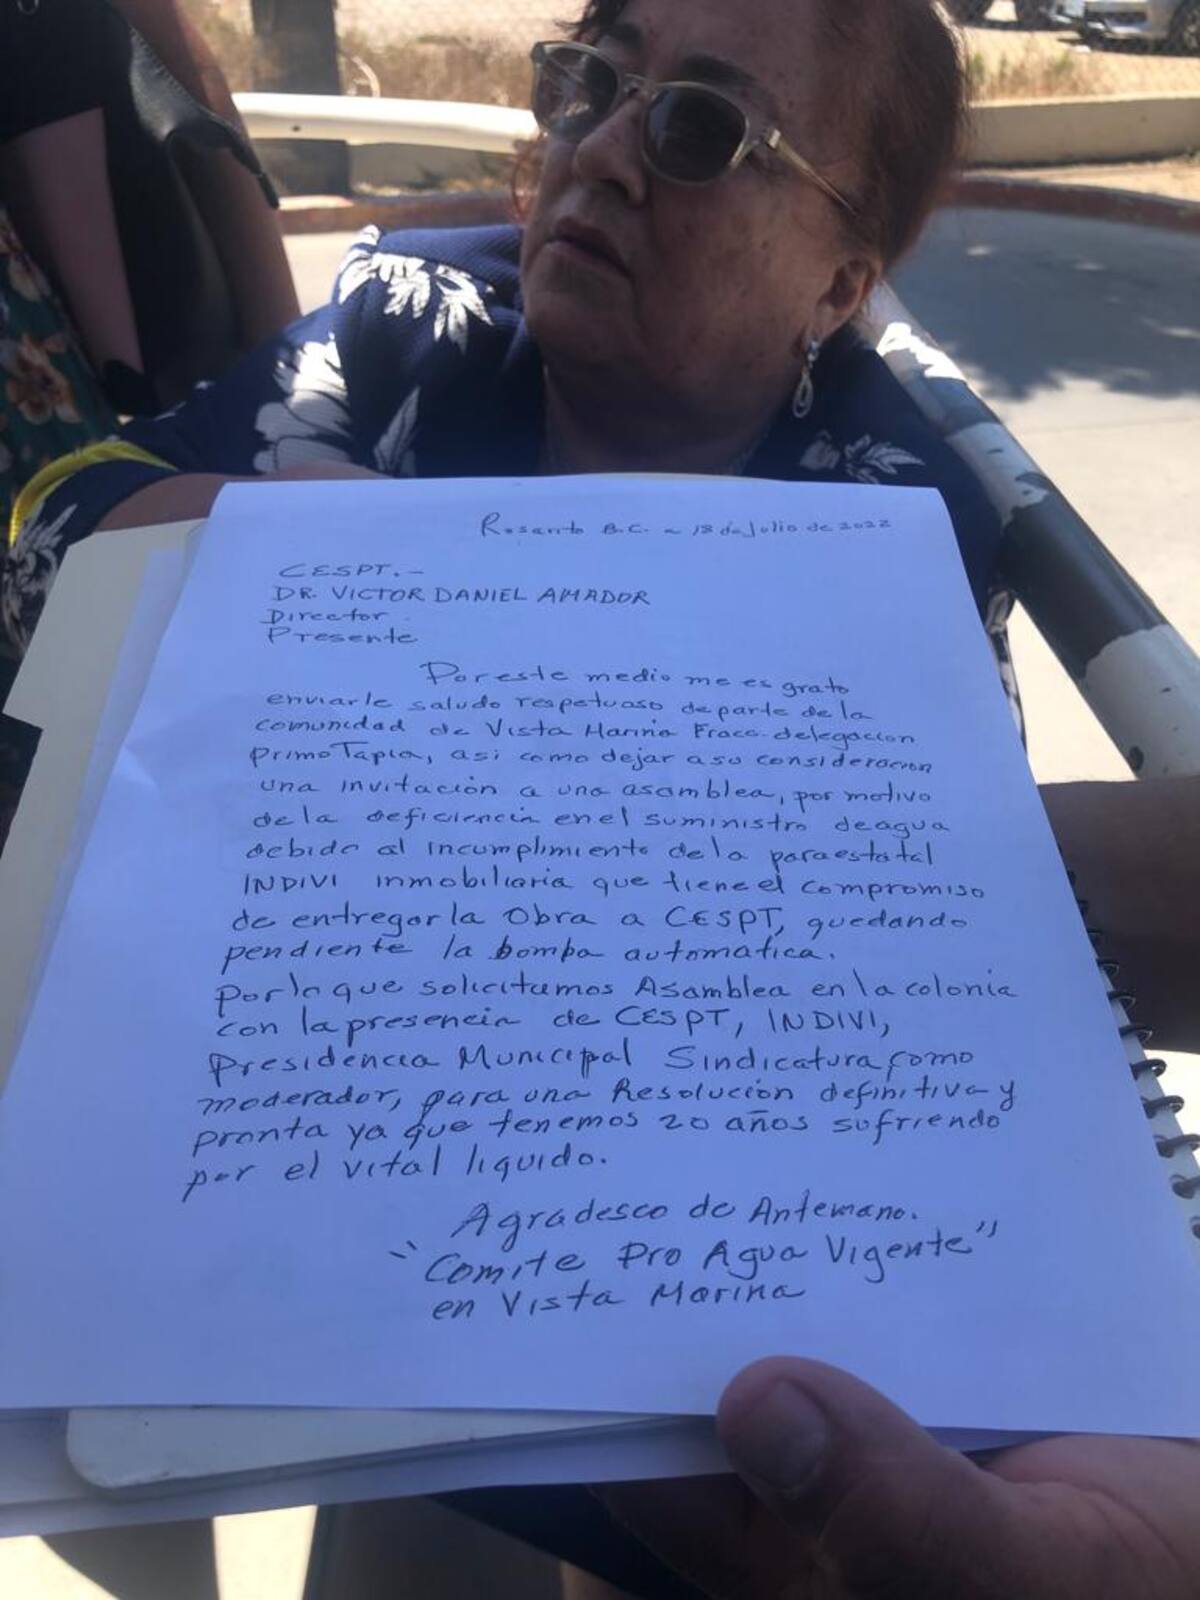 Rosarito B.C. a 18 de Julio de 2022
CESPT.-
DR. VICTOR DANIEL AMADOR
Director.
Presente
Por este medio me es grato
enviarle saludo respetuoso de parte de la
comunidad de Vista Marina Fracc. delegacion
Primo Tapia, asi como dejar a su consideracion
una invitación a una asamblea, por motivo
de la deficiencia en el suministro de agua
debido al incumplimiento de la paraestatal
INDIVI inmobiliaria que tiene el compromiso
de entregar la Obra a CESPT, quedando
pendiente la bomba automatica.
Por lo que solicitamos Asamblea en la colonia
con la presencia de CESPT, INDIVI,
Presidencia Municipal Sindicatura, como
moderador, para una Resolución definitiva y
pronta ya que tenemos 20 años sufriendo
por el vital liquido.
Agradesco de Antemano.
"Comite Pro Agua Vigente"
en Vista Marina